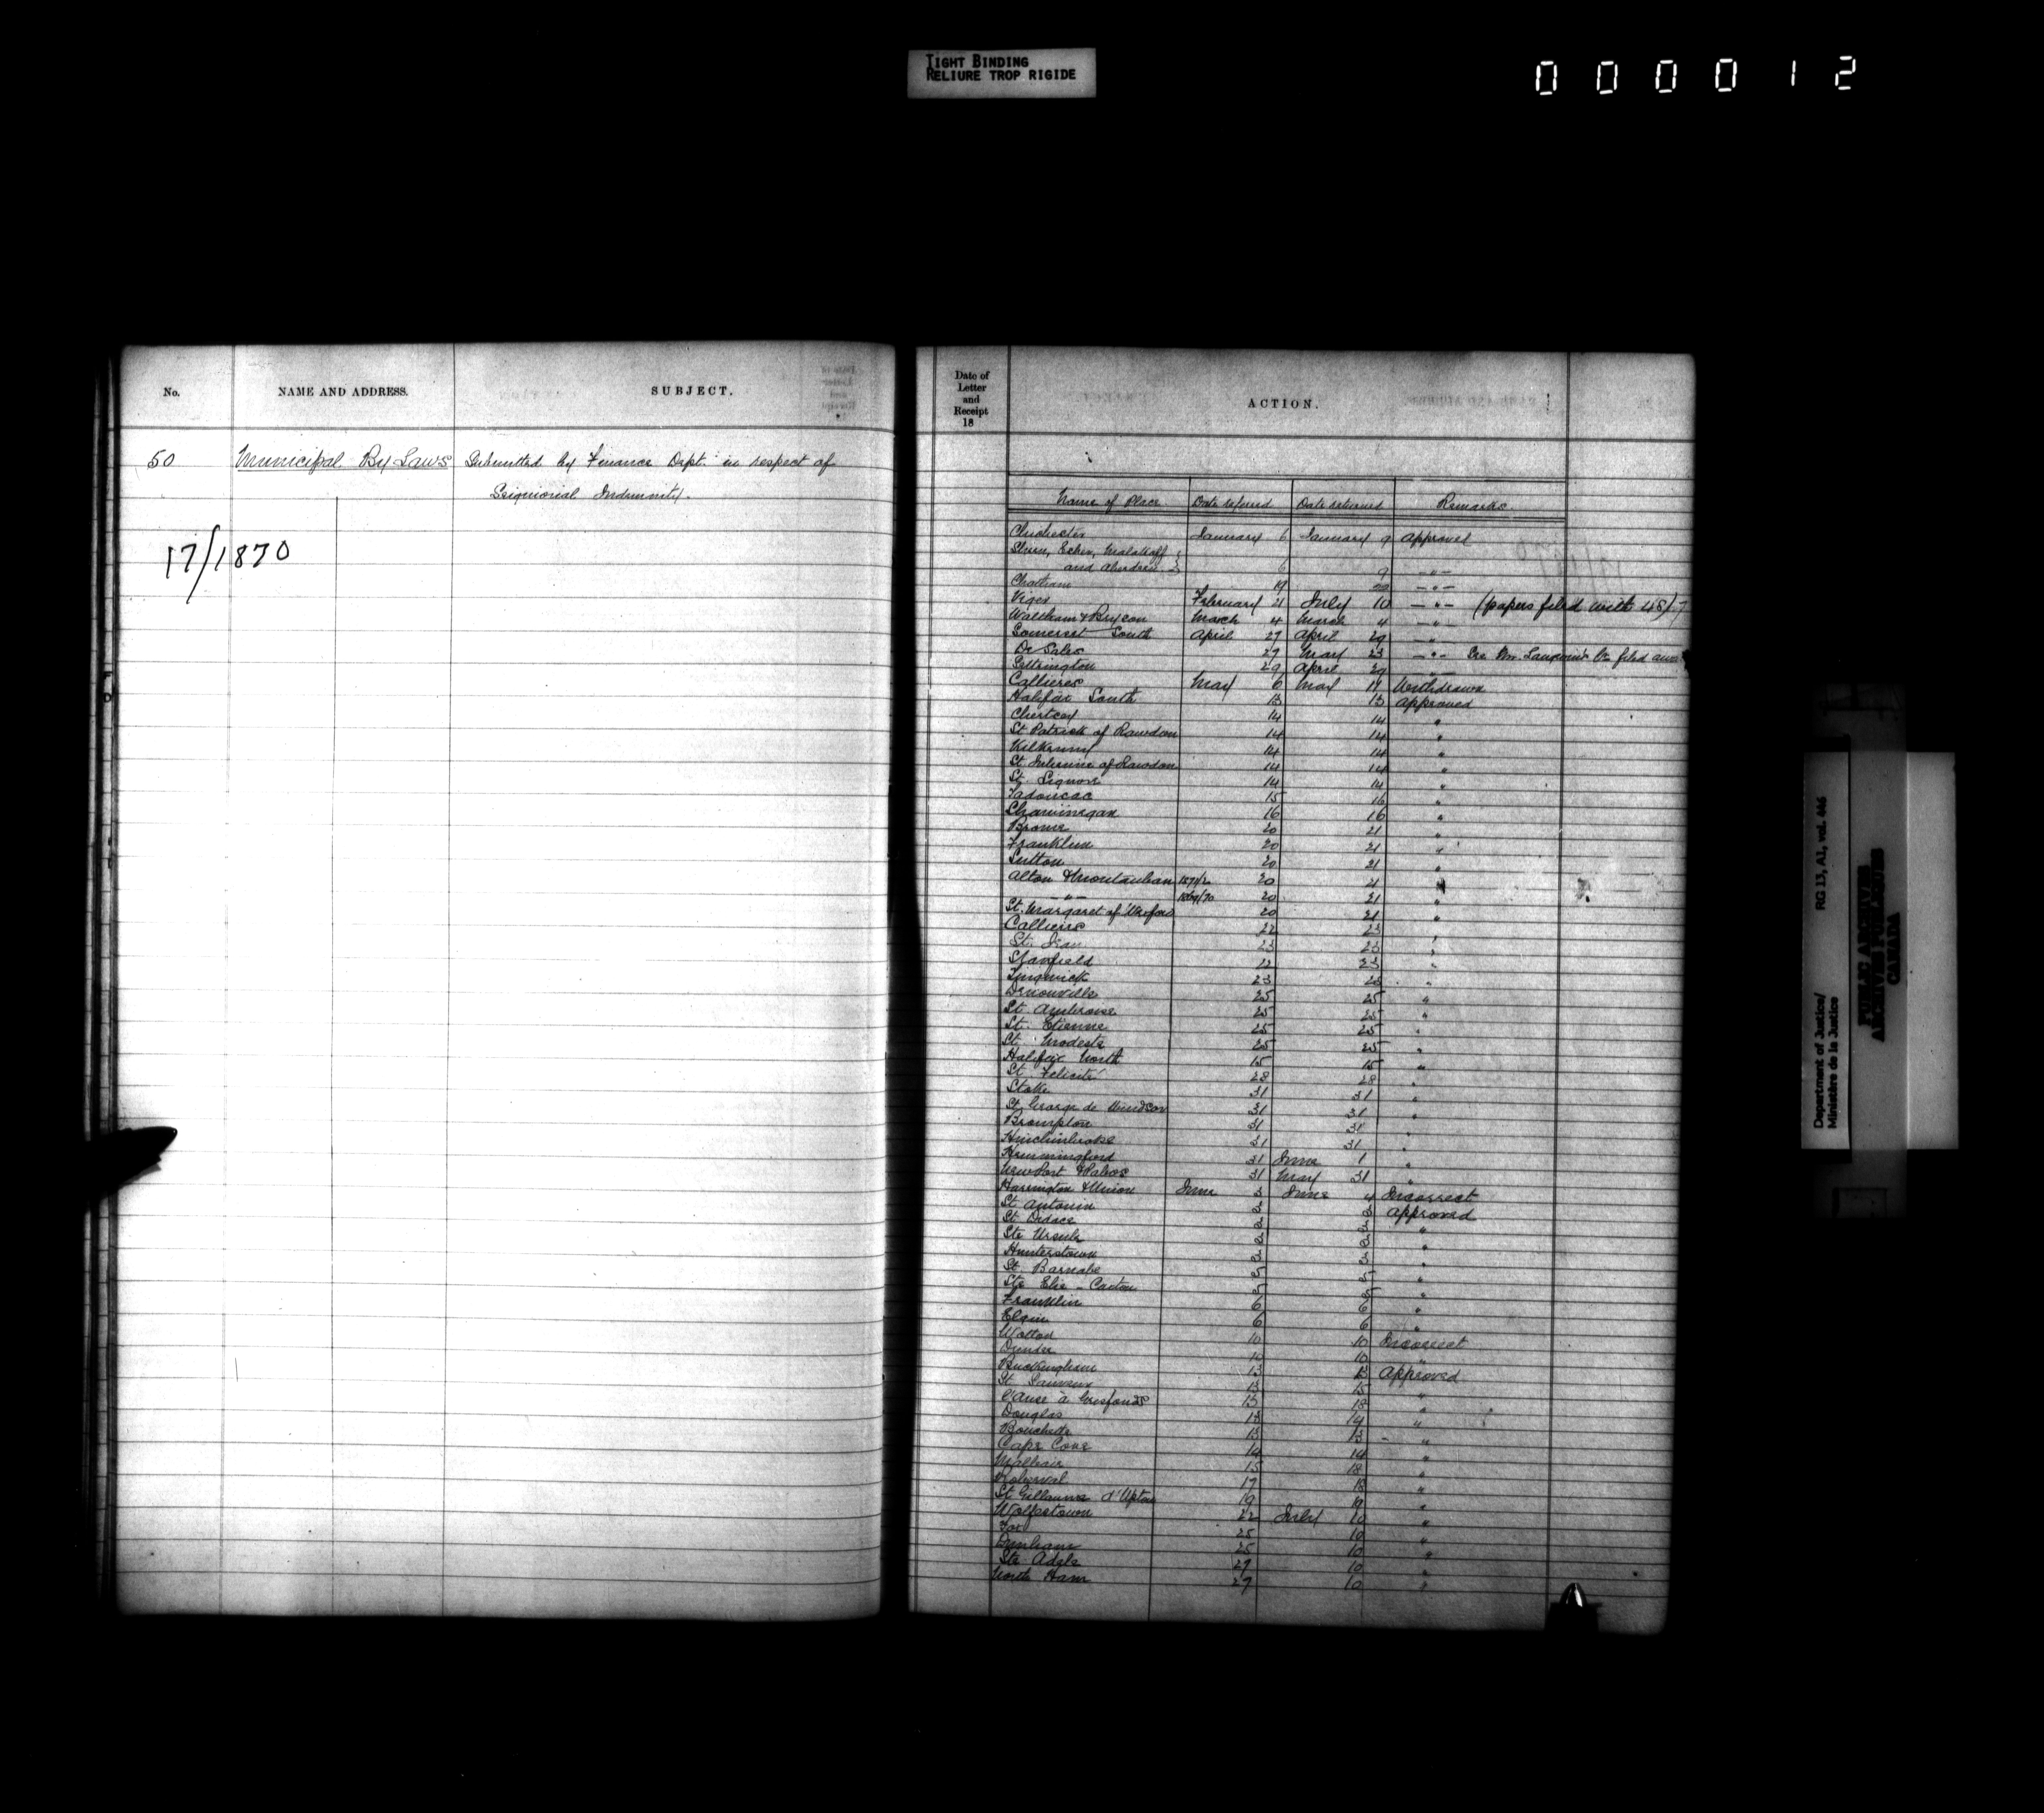 TIGHT BINDING
RELIURE TROP RIGIDE
000012
No. NAME AND ADDRESS. SUBJECT.
50 Municipal By Laws Submitted by Finance Dept. in respect of
Seigniorial Indemnity.
17/1870
Date of
Letter
and
Receipt
18
ACTION.
Name of Place Date referred Date returned Remarks
Chichester January 6 January 9 Approved
and Aberdeen 6 9 — " —
Chatham 19 — " —
Viger February 21 July 10 — " — (papers filed with 48/7
Waltham & Bryson March 4 March 4 — " —
Somerset South April 27 April 29 — " —
De Sales 27 May 23 — " — See Mr.
29 April 29 — " —
Callieres May 6 May 11 Withdrawn
Halifax South 13 13 Approved
Chertsey 14 14 "
St Patrick of Rawdon 14 14 "
Kilkenny 14 14 "
St. Julienne of Rawdon 14 14 "
St. Liguori 14 14 "
Tadoucac 15 16 "
Shawinegan 16 16 "
Brome 20 21 "
Franklin 20 21 "
Sutton 20 21 "
Alton & Montauban 1871/2 20 21 "
— " — 1869/70 20 21 "
St. Margaret of 20 21 "
Callieres 22 23 "
St. Jean 23 23 "
Stanfield 12 23 "
Lingwick 23 25 "
Denonville 25 25 "
St. Ambroise 25 25 "
St. Etienne 25 25 "
St. Modeste 25 25 "
Halifax North 15 15 "
St. Felicité 28 28 "
Stoke 31 31 "
St. George de Windsor 31 31 "
Brompton 31 31 "
Hinchinbroke 31 31 "
Hemmingford 31 June 1 "
New Port & Pabos 31 May 31 "
Harrington & Union June 3 June 4 Incorrect
St Antonin 3 3 Approved
St Didace 3 3 "
Ste Ursule 3 3 "
Hunterstown 3 3 "
St Barnabe 5 5 "
Ste Elie - Caxton 5 5 "
Franklin 6 6 "
Elgin 6 6 "
Wotton 10 10 Incorrect
Dundee 10 10 "
Buckingham 13 13 Approved
St Sauveur 13 15 "
l'Anse à Grisfonds 13 18 "
Douglas 13 14 "
Bouchette 13 13 "
Cape Cove 14 14 "
Malbaie 15 18 "
Roberval 17 18 "
St Gillaume d'Upton 19 19 "
Wolfestown 22 July 10 "
Fox 25 10 "
Dunham 25 10 "
Ste Adele 27 10 "
North Ham 27 10 "
Department of Justice/
Ministère de la Justice
RG 13, A1, vol. 446
PUBLIC ARCHIVES
ARCHIVES PUBLIQUES
CANADA